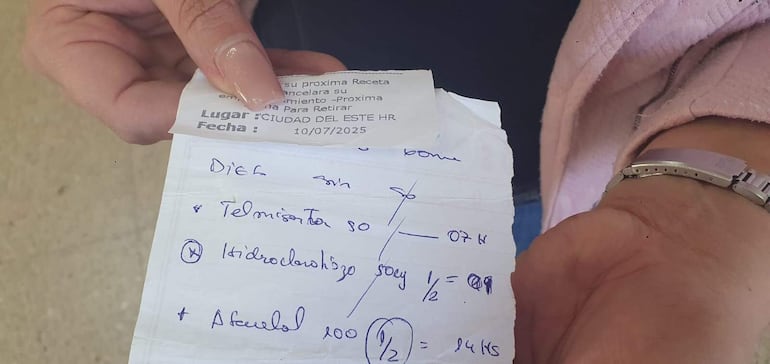 su proxima Receta
cancelara su
miento -Proxima
na Para Retirar
Lugar : CIUDAD DEL ESTE HR
Fecha : 10/07/2025
Dieta sin
* Telmisartan 80 — 07 H
* Hidroclorotiazo 50mg 1/2 =
* Atenolol 100 1/2 = 14 Hs